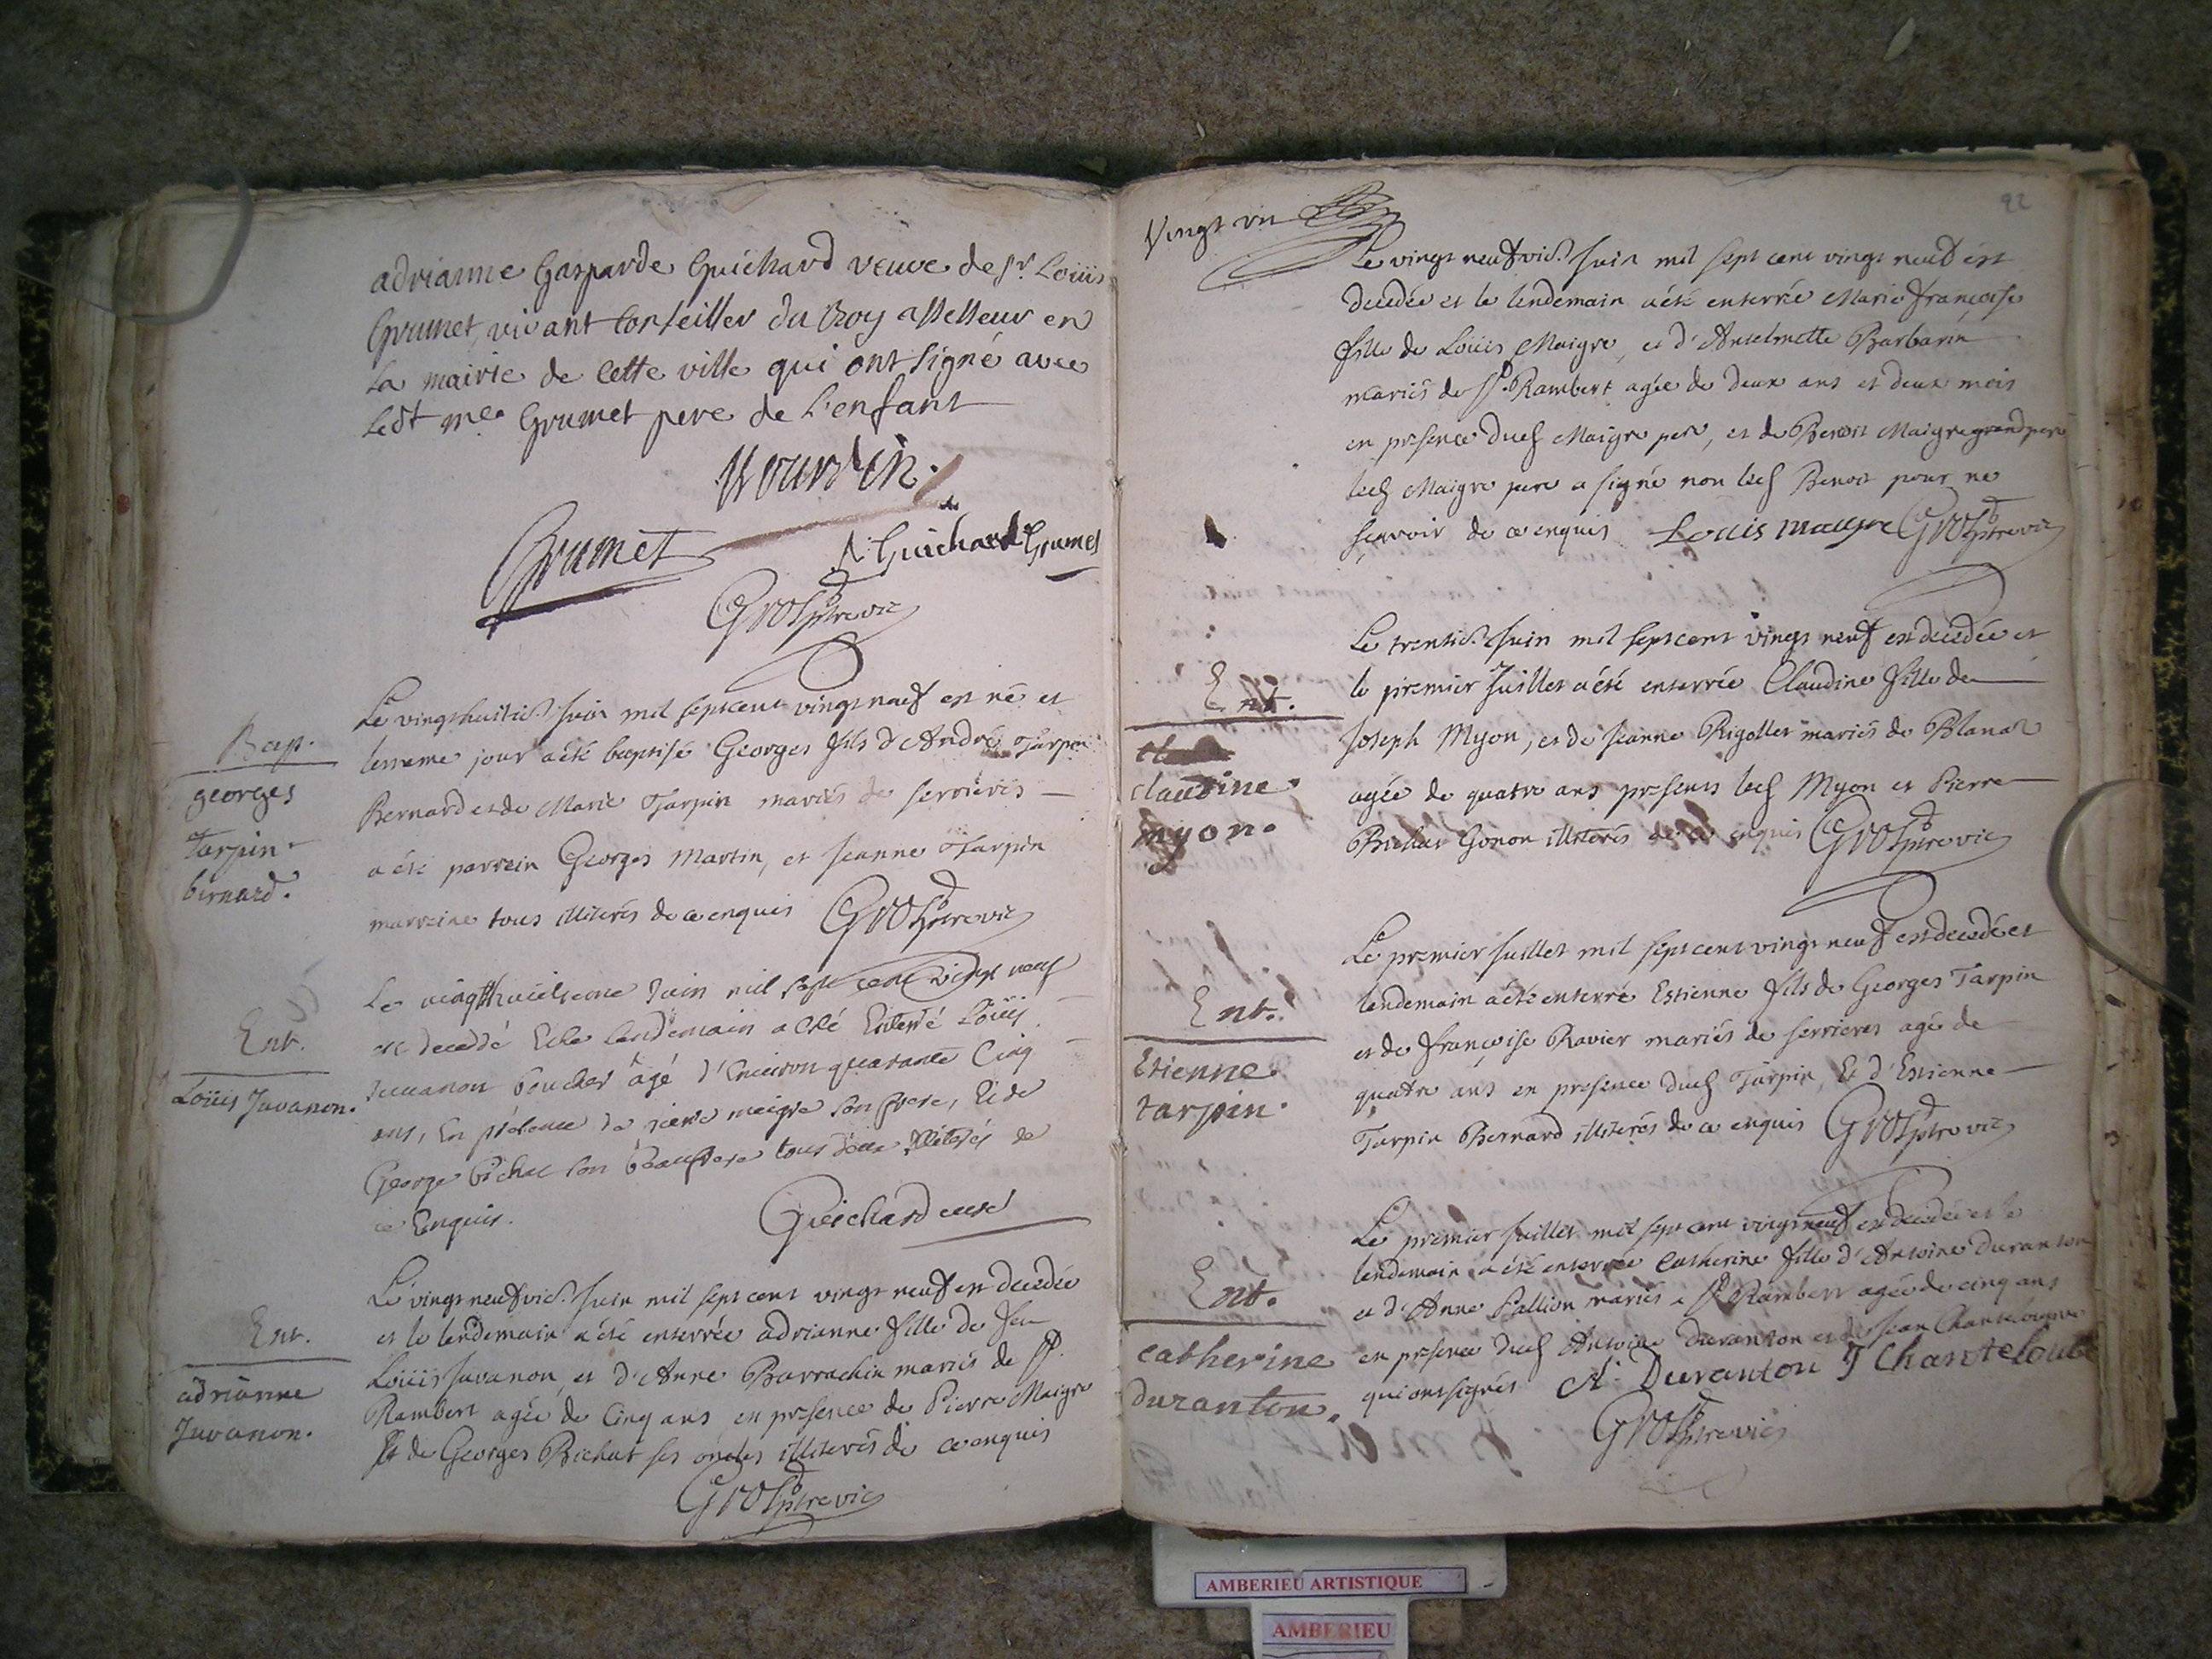 adrianne Gasparde Guichard veuve de Sr. Loüis
Grumet, vivant Conseiller du Roy assesseur en
la mairie de cette ville qui ont signé avec
ledt me. Grumet pere de l'enfant
Grumet
A Guichard Grumet
Grosptrevic
Bap.
georges
Tarpin
bernard.
Le vingthuitie. Juin mil sept cent vingt neuf est né et
lememe jour a été baptisé Georges fils d'André Tarpin
Bernard et de Marie Tarpin mariés de serrieres
a été parrein Georges Martin, et Jeanne Tarpin
marreine tous illiterés de ce enquis Grosptrevic
Ent.
Loüis Juvanon.
Le vingthuictieme Juin mil sept cent vingt neuf
est decedé Et le lendemain a Eté Enterré Loüis
Juvanon boucher âgé d'Environ quarante Cinq
ans, En présence de pierre meigre son frere, Et de
George bichat son beaufrere tous deux illiterés de
ce Enquis. Guichard curé
Ent.
adrianne
Juvanon.
Le vingt neufvie. Juin mil sept cent vingt neuf est decedée
et le lendemain a été enterrée adrianne fille de feu
Loüis Juvanon, et d'Anne Barrachin mariés de St.
Rambert agée de Cinq ans en presence de Pierre Maigre
Et de Georges Bichat ses oncles illiterés de ce enquis
Grosptrevic
Vingt un
92
Le vingt neufvie. Juin mil sept cent vingt neuf est
decedée et le lendemain a été enterrée Marie françoise
fille de Loüis Maigre, et d'Anselmette Barbarin
mariés de St. Rambert agée de deux ans et deux mois
en presence dud. Maigre pere, et de Benoit Maigre grand pere
led. Maigre pere a signé non led. Benoit pour ne
sçavoir de ce enquis Louis maigre Grosptrevic
Ent.
claudine
myon.
Le trentie. Juin mil sept cent vingt neuf est decedée et
le premier Juillet a été enterrée Claudine fille de
Joseph Myon, et de Jeanne Rigollet mariés de Blanaz
agée de quatre ans presents led. Myon et Pierre
Bichat Gonon illiterés de ce enquis Grosptrevic
Ent.
Etienne
tarpin.
Le premier Juillet mil sept cent vingt neuf est decedé et
lendemain a été enterré Estienne fils de Georges Tarpin
et de françoise Ravier mariés de serrieres agé de
quatre ans en presence dud. Tarpin, Et d'Estienne
Tarpin Bernard illiterés de ce enquis Grosptrevic
Ent.
catherine
duranton.
Le premier Juillet mil sept cent vingt neuf est decedée et le
lendemain a été enterrée Catherine fille d'Antoine Duranton
et d'Anne Pallion mariés de St. Rambert agée de cinq ans
en presence dud. Antoine Duranton et de Jean Chanteloube
qui ont signés A. Duranton J Chanteloube
Grosptrevic
AMBERIEU ARTISTIQUE
AMBERIEU